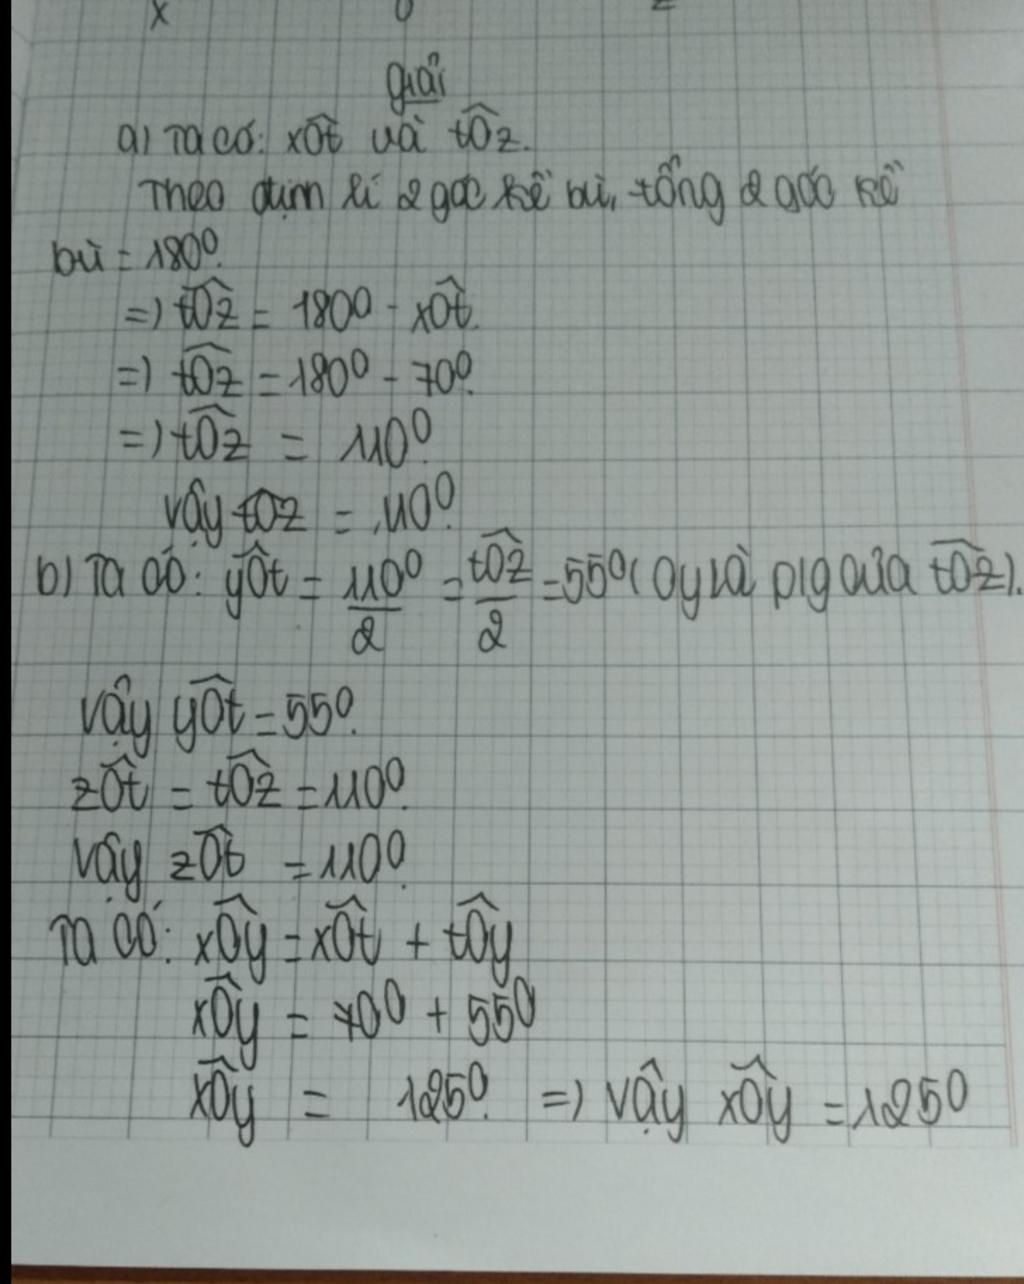 x O z
giải
a) Ta có: xÔt và tÔz.
Theo định lí 2 góc kề bù, tổng 2 góc kề
bù = 180⁰.
=) tÔz = 180⁰ - xÔt.
=) tÔz = 180⁰ - 70⁰.
=) tÔz = 110⁰.
Vậy tÔz = 110⁰.
b) Ta có: yÔt = 110⁰/2 = tÔz/2 = 55⁰ ( Oy là p/g của tÔz).
Vậy yÔt = 55⁰.
zÔt = tÔz = 110⁰.
Vậy zÔt = 110⁰.
Ta có: xÔy = xÔt + tÔy
xÔy = 70⁰ + 55⁰
xÔy = 125⁰. =) Vậy xÔy = 125⁰